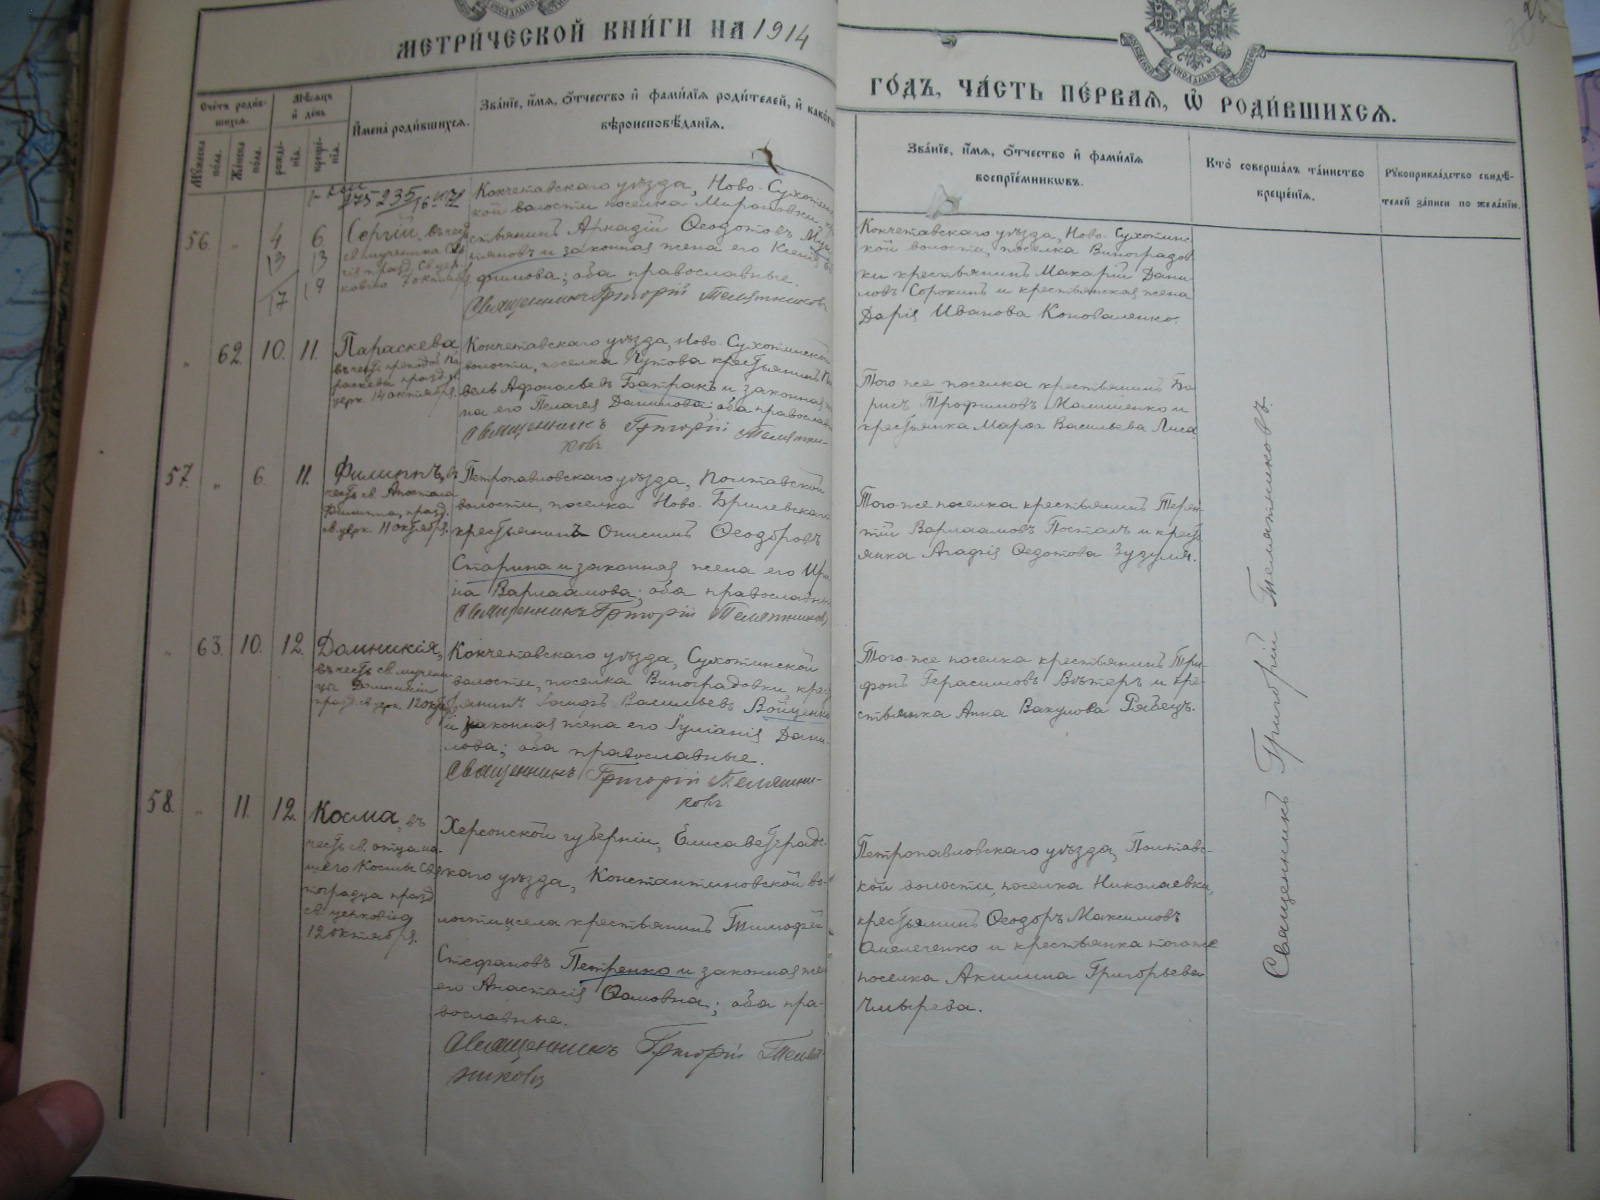 МЕТРИ́ЧЕСКОЙ КНИ́ГИ НА 1914
ГО́ДЪ, ЧА́СТЬ ПЕ́РВАЯ, Ѡ РОДИ́ВШИХСЯ.
Сче́тъ роди́в-
шихся.
Мѣ́сяцъ
и҆ день
И҆мена̀ роди́вшихся.
Зва́нїе, и҆́мя, ѻ҆́тчество и҆ фами́лїя роди́телей, и҆ како́гѡ
вѣроисповѣ́данїя.
Му́жеска
по́ла.
Же́нска
по́ла.
рожде́-
нїя.
креще́-
нїя.
Зва́нїе, и҆́мя, ѻ҆́тчество и҆ фами́лїя
воспрїе́мниковъ.
Кто̀ соверша́лъ та́инство
креще́нїя.
Рꙋкоприкла́дство свидѣ́-
телей за́писи по жела́нїю.
56. " 4 6
13 13
17 19
Сергій, въ честь
7 октября
Кокчетавскаго уѣзда, Ново-Сухотин-
ской волости поселка Мироновки кре-
стьянинъ Аркадій Ѳеодотовъ
и законная жена его Ксенія
фимова; оба православные.
Священникъ Григорій Телятниковъ
Кокчетавскаго уѣзда, Ново-Сухотинс-
кой волости, поселка Виноградов-
ки крестьянинъ Макарій Дани-
ловъ Сорокинъ и крестьянская жена
Дарія Иванова Коноваленко.
" 62. 10. 11.
Параскева,
въ честь преподоб. Па-
раскевы празд.
церк. 14 октября.
Кокчетавскаго уѣзда, Ново-Сухотинской
волости, поселка Путова крестьянинъ Па-
велъ Афонасьевъ Батракъ и законная же-
на его Пелагея Данилова: оба православн.
Священникъ Григорій Телятни-
ковъ
Того же поселка крестьянинъ Бо-
рисъ Трофимовъ Малишенко и
крестьянка Марѳа Васильева Лиса.
57. " 6. 11.
Филиппъ, въ
честь св. Апостола
Филиппа, празд.
св. церк. 11 октября.
Петропавловскаго уѣзда, Полтавской
волости, поселка Ново-Брилевскаго
крестьянинъ Онисимъ Ѳеодоровъ
Старина и законная жена его Ири-
на Варлаамова; оба православн.
Священникъ Григорій Телятниковъ
Того же поселка крестьянинъ Терен-
тій Варлаамовъ Посталъ и кресть-
янка Агафія Ѳедотова Зузуля.
" 63. 10. 12.
Домникія,
въ честь св. мучени-
цы Домникіи
празд. св. церк. 12 окт.
Кокчетавскаго уѣзда, Сухотинской
волости, поселка Виноградовки, крест-
янинъ Іосифъ Васильевъ Войценко
и законная жена его Іуліанія Дани-
лова; оба православные.
Священникъ Григорій Телятни-
ковъ
Того же поселка крестьянинъ Три-
фонъ Герасимовъ Вѣтеръ и кре-
стьянка Анна Вакулова Рябецъ.
58. " 11. 12.
Косма, въ
честь св. отца на-
шего Космы Свя-
тоградца празд
св. церковію
12 октября.
Херсонской губерніи, Елисаветградс-
каго уѣзда, Константиновской во-
лости, села крестьянинъ Тимофей
Стефановъ Петренко и законная жен
его Анастасія Ѳомовна; оба пра-
вославные.
Священникъ Григорій Телят-
никовъ
Петропавловскаго уѣзда, Полтавс-
кой волости, поселка Николаевки,
крестьянинъ Ѳеодоръ Максимовъ
Омелеченко и крестьянка того же
поселка Акилина Григорьева
Чмырева.
Священникъ Григорій Телятниковъ.